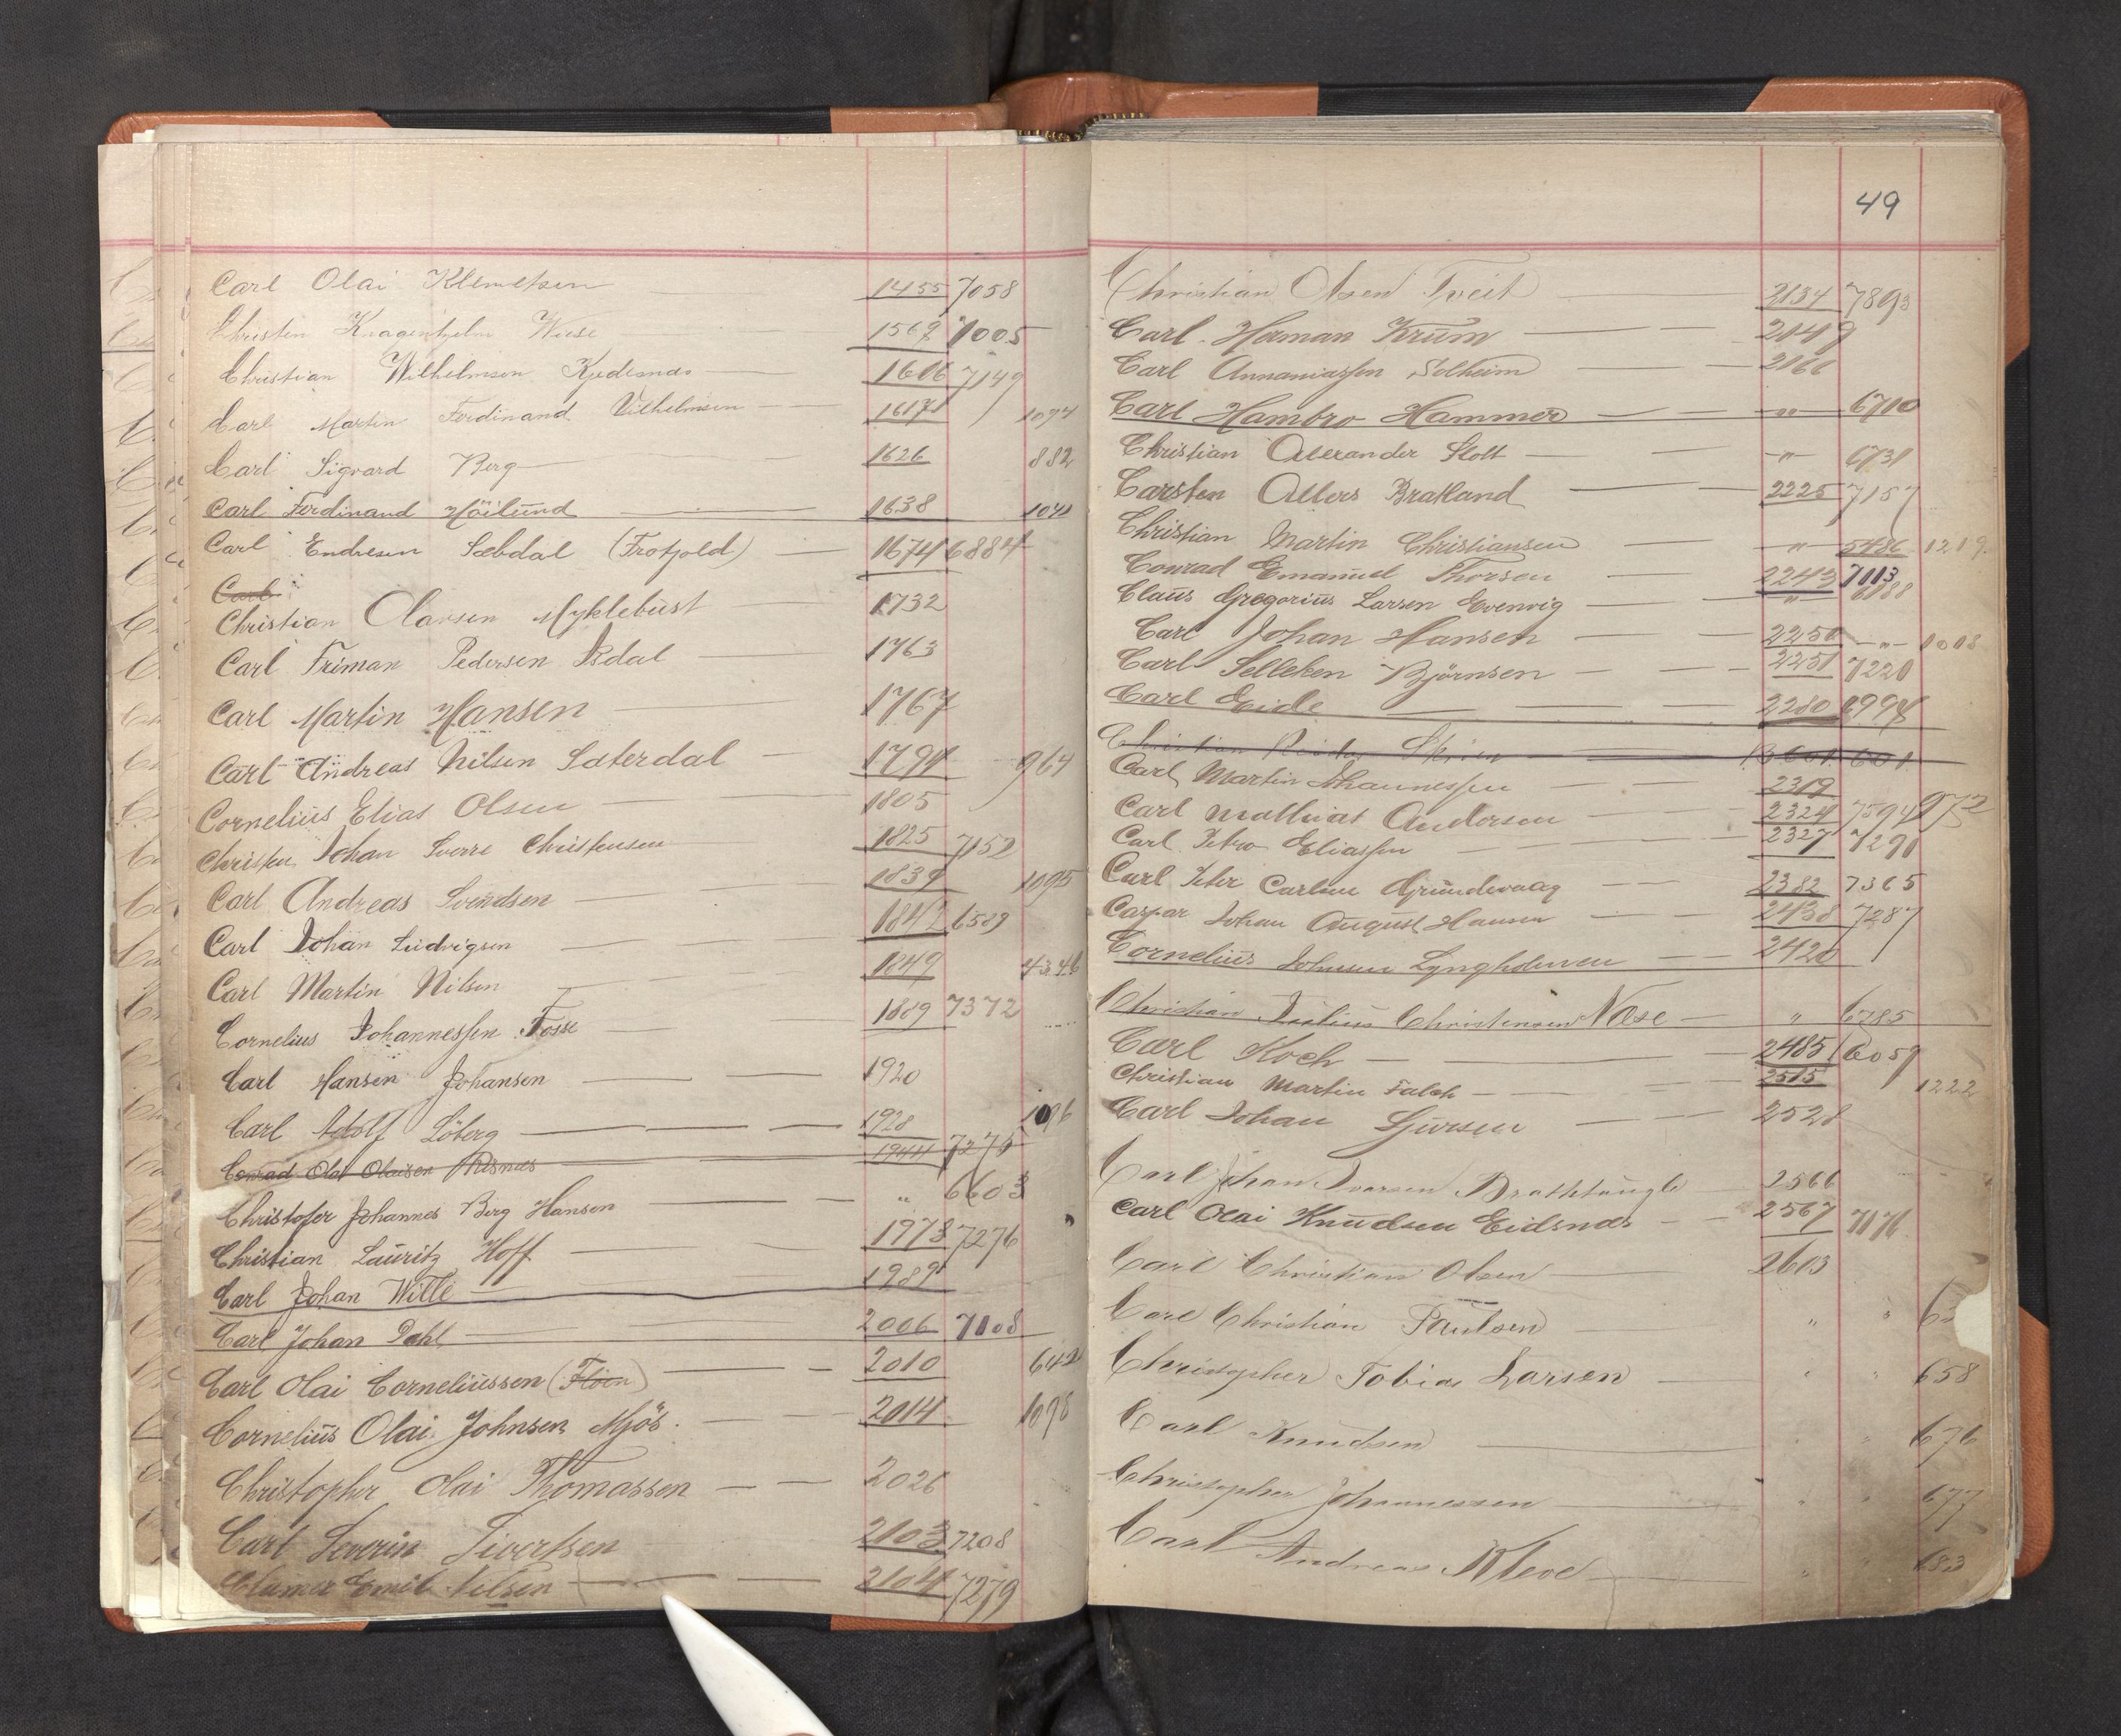 Carl Olai Klemetsen 1455 7058
Christen Knagenhjelm Wiese 1569 7005
Christian Wilhelmsen Kjedesnæs 1606 7149
Carl Martin Ferdinand Vilhelmsen 1617 1094
Carl Sigvard Berg 1626 882
Carl Ferdinand Höilund 1638 1041
Carl Endresen Sæbdal (Trofjold) 1674 6884
Carl
Christian Olausen Myklebust 1732
Carl Friman Pedersen Isdal 1763
Carl Martin Hansen 1767
Carl Andreas Nilsen Sæterdal 1794 964
Cornelius Elias Olsen 1805
Christen Johan Sverre Christensen 1825 7152
Carl Andreas Svendsen 1839 1095
Carl Johan Ludvigsen 1842 6589
Carl Martin Nilsen 1849
Cornelius Johannessen Fosse 1889 7372
Carl Hansen Johansen 1920
Carl Adolf Löberg 1928 1096
Conrad Olai Olaisen Risnæs 1944 7275
Christofer Johannes Berg Hansen " 6603
Christian Lauritz Hoff 1973 7276
Carl Johan Wille 1989
Carl Johan Dahl 2006 7108
Carl Olai Corneliussen (Flöen) 2010 642
Cornelius Olai Johnsen Mjös. 2014 1098
Christopher Olai Thomassen 2026
Carl Severin Sivertsen 2103 7208
Clamer Emil Nilsen 2104 7279
49
Christian Olsen Tveit 2134 7893
Carl Herman Krum 2149
Carl Annaniassen Solheim 2166
Carl Hambro Hammer " 6710
Christian Alexander Stolt " 6731
Carsten Allers Bratland 2225 7157
Christian Martin Christiansen " 5486 1219
Conrad Emanuel Thorsen 2243 7113
Claus Gregorius Larsen Evenvig " 6188
Carl Johan Hansen 2250 " 1008
Carl Selleken Björnsen 2251 7220
Carl Eide 2280 6994
Christian
Carl Martin Johannessen 2319
Carl Mathias Andersen 2324 7594 972
Carl Petro Eliassen 2327 7290
Carl Peter Carlsen Grundevaag 2382 7365
Caspar Johan August Hansen 2438 7287
Cornelius Johnsen Lyngholmen 2420
Christian Julius Christensen Næse " 6785
Carl Koch 2485 6059
Christian Martin Falch 2515 1222
Carl Johan Sjursen 2528
Carl Johan Ivarsen Bratthaugle 2566
Carl Olai Knudsen Eidsnæs 2567 7176
Carl Christian Olsen 2603
Carl Christian Paulsen " "
Christopher Tobias Larsen " " 658
Carl Knudsen " " 676
Christopher Johannessen " " 677
Carl Andreas Kleve " " 683